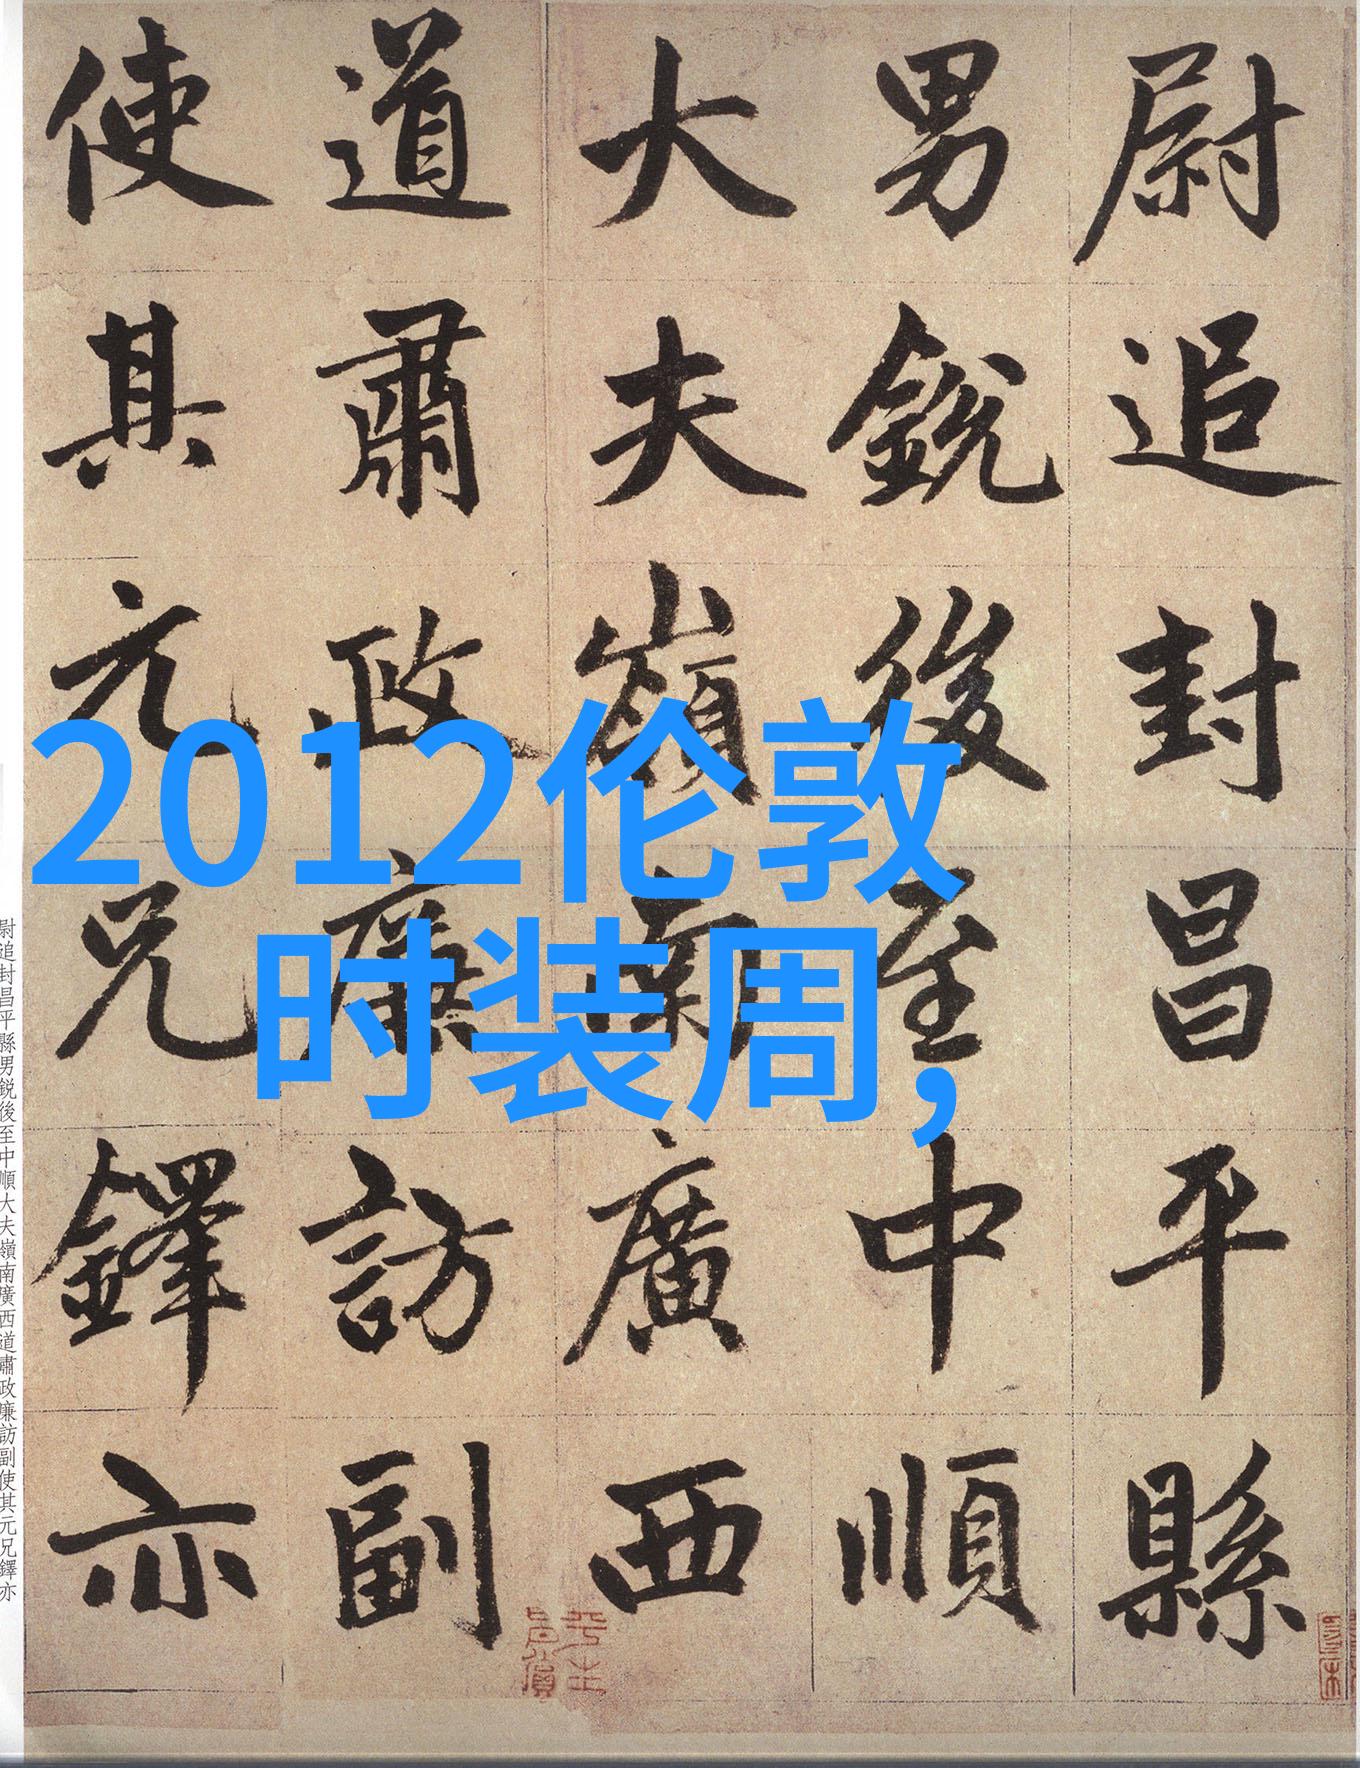 尉追封昌平縣
男銳後至中順
大夫嶺南廣西
道肅政廉訪副
使其元兄鐸亦
2012伦敦
时装周,
尉追封昌平縣男銳後至中順大夫嶺南廣西道肅政廉訪副使其元兄鐸亦